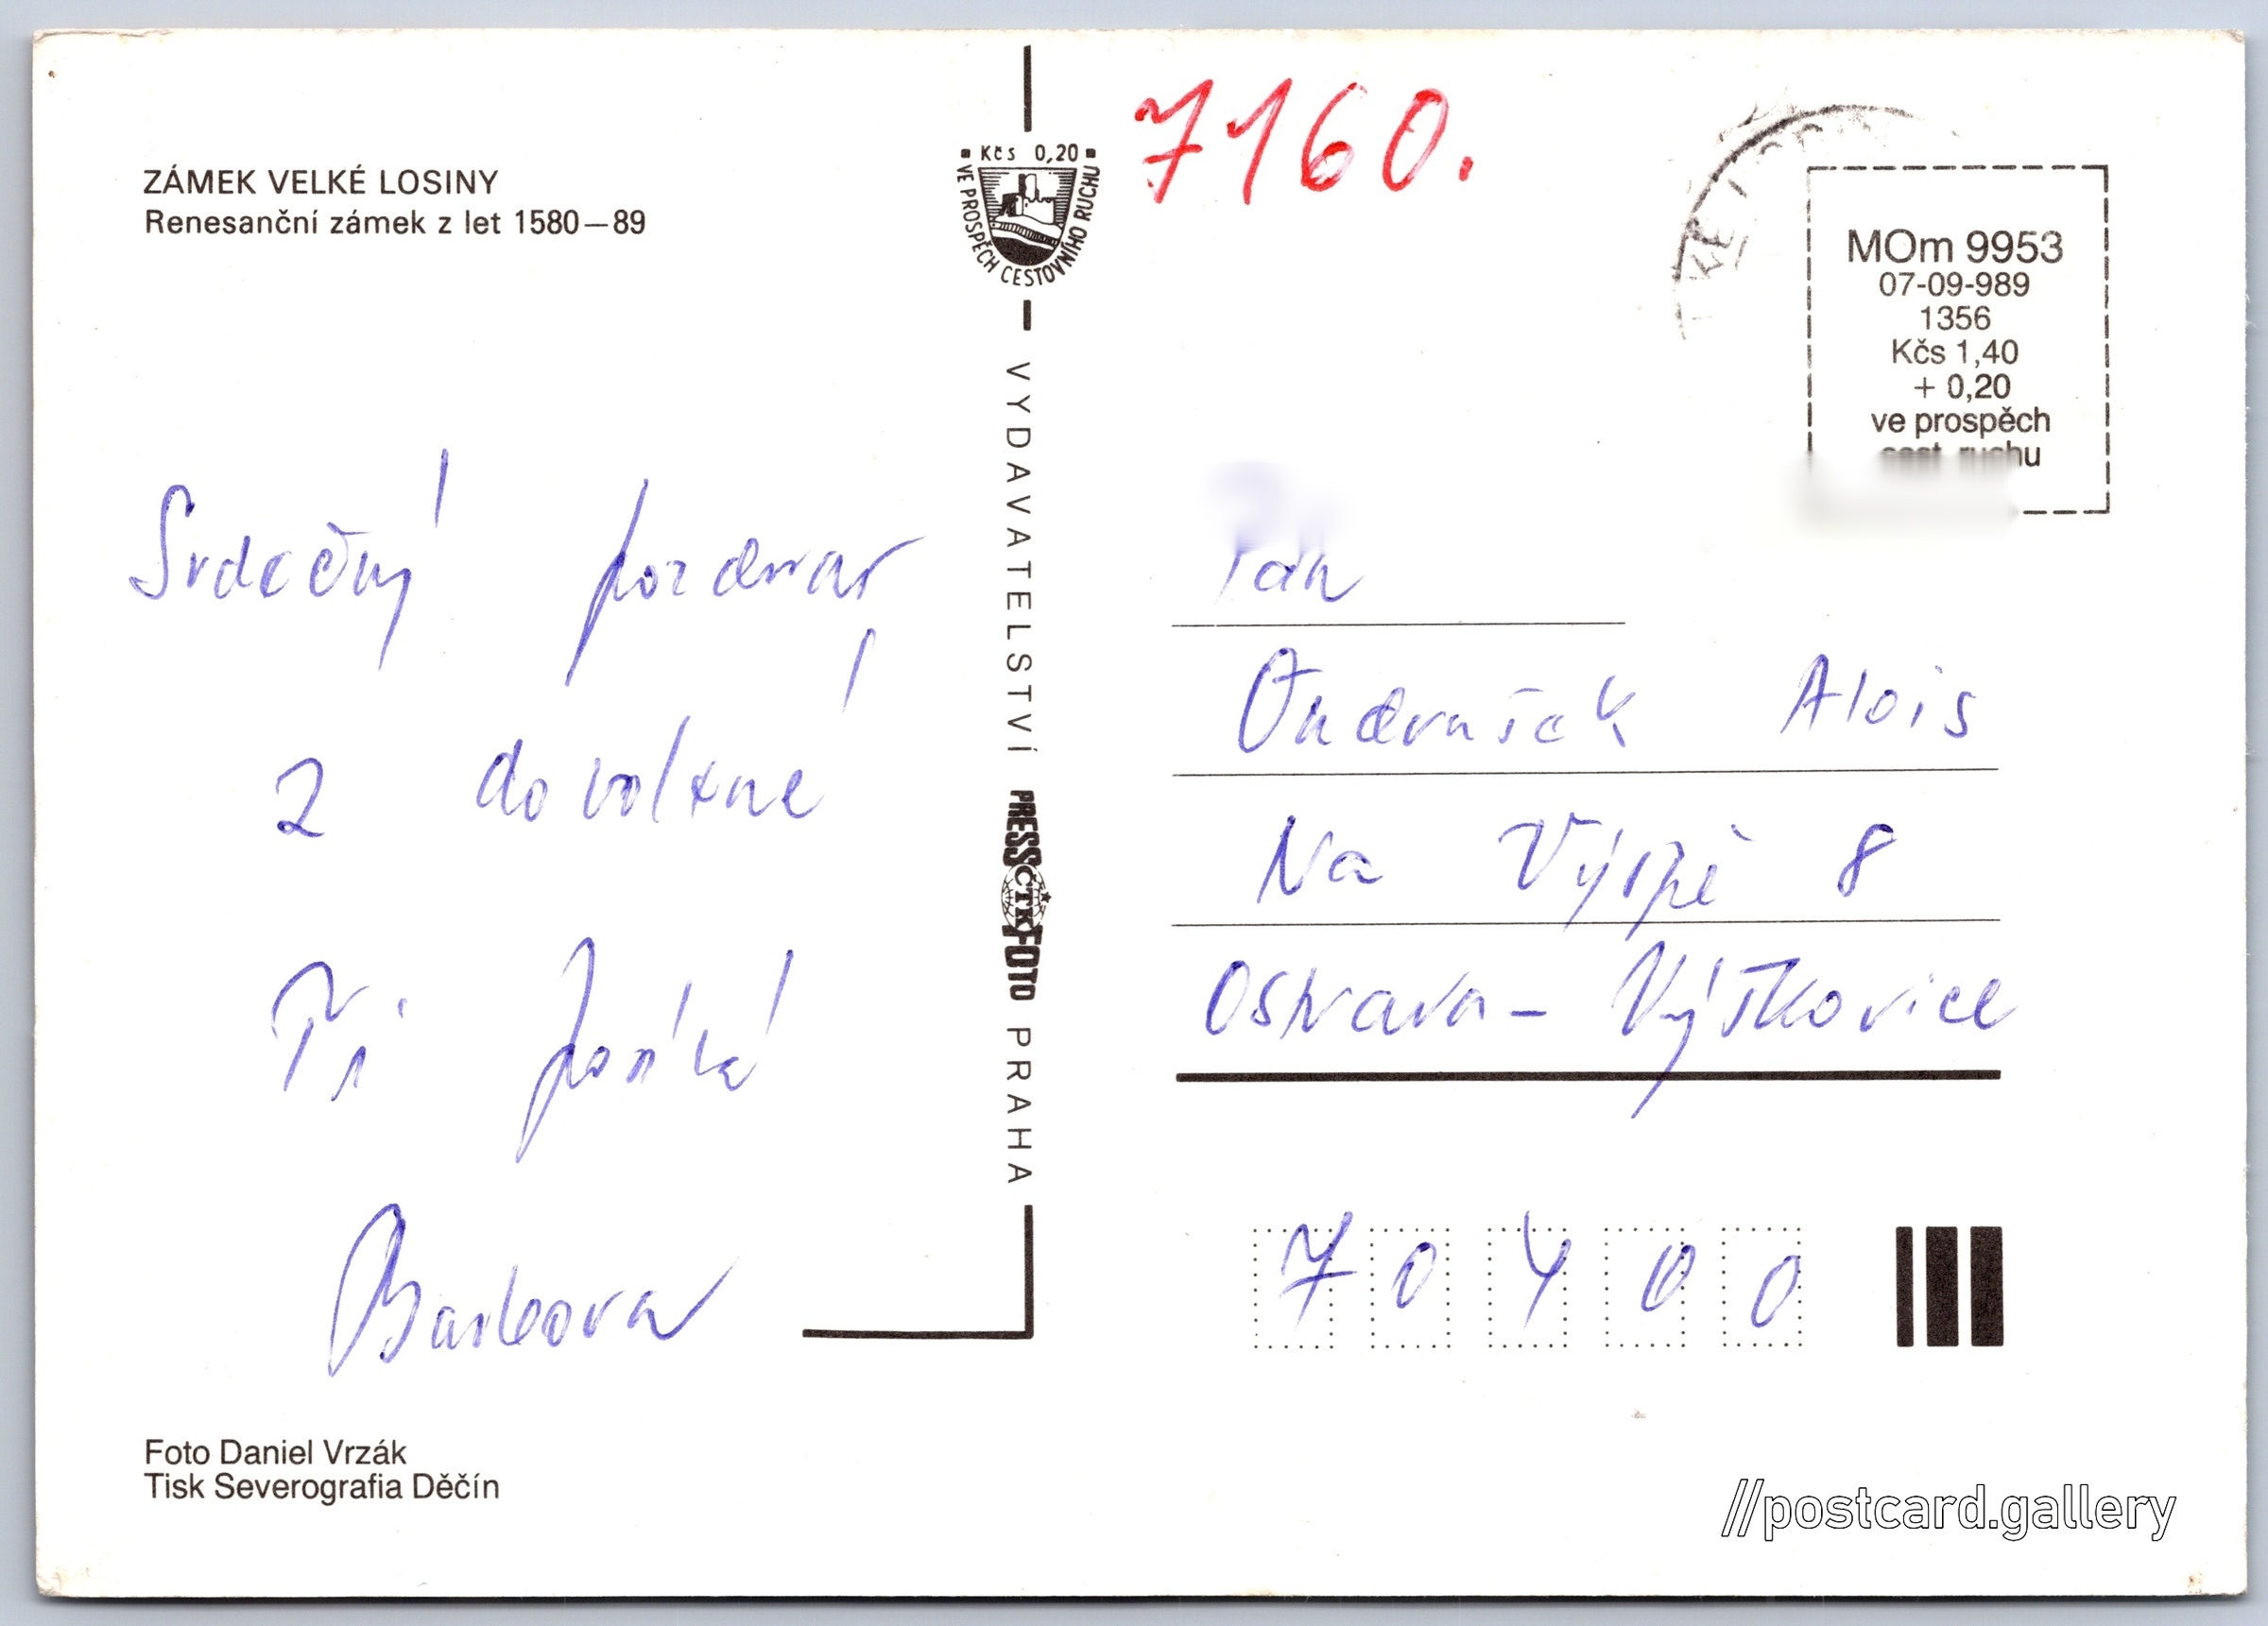 ZÁMEK VELKÉ LOSINY
Renesanční zámek z let 1580—89
Srdečný pozdrav
z dovolené
Ti posílá
Foto Daniel Vrzák
Tisk Severografia Děčín
Kčs 0,20
VE PROSPĚCH CESTOVNÍHO RUCHU
VYDAVATELSTVÍ PRESSFOTO PRAHA
ČTK
7160.
MOm 9953
07-09-989
1356
Kčs 1,40
+ 0,20
ve prospěch
cest. ruchu
Pan
Ondrušek Alois
Na Výspě 8
Ostrava - Výtkovice
70400
//postcard.gallery